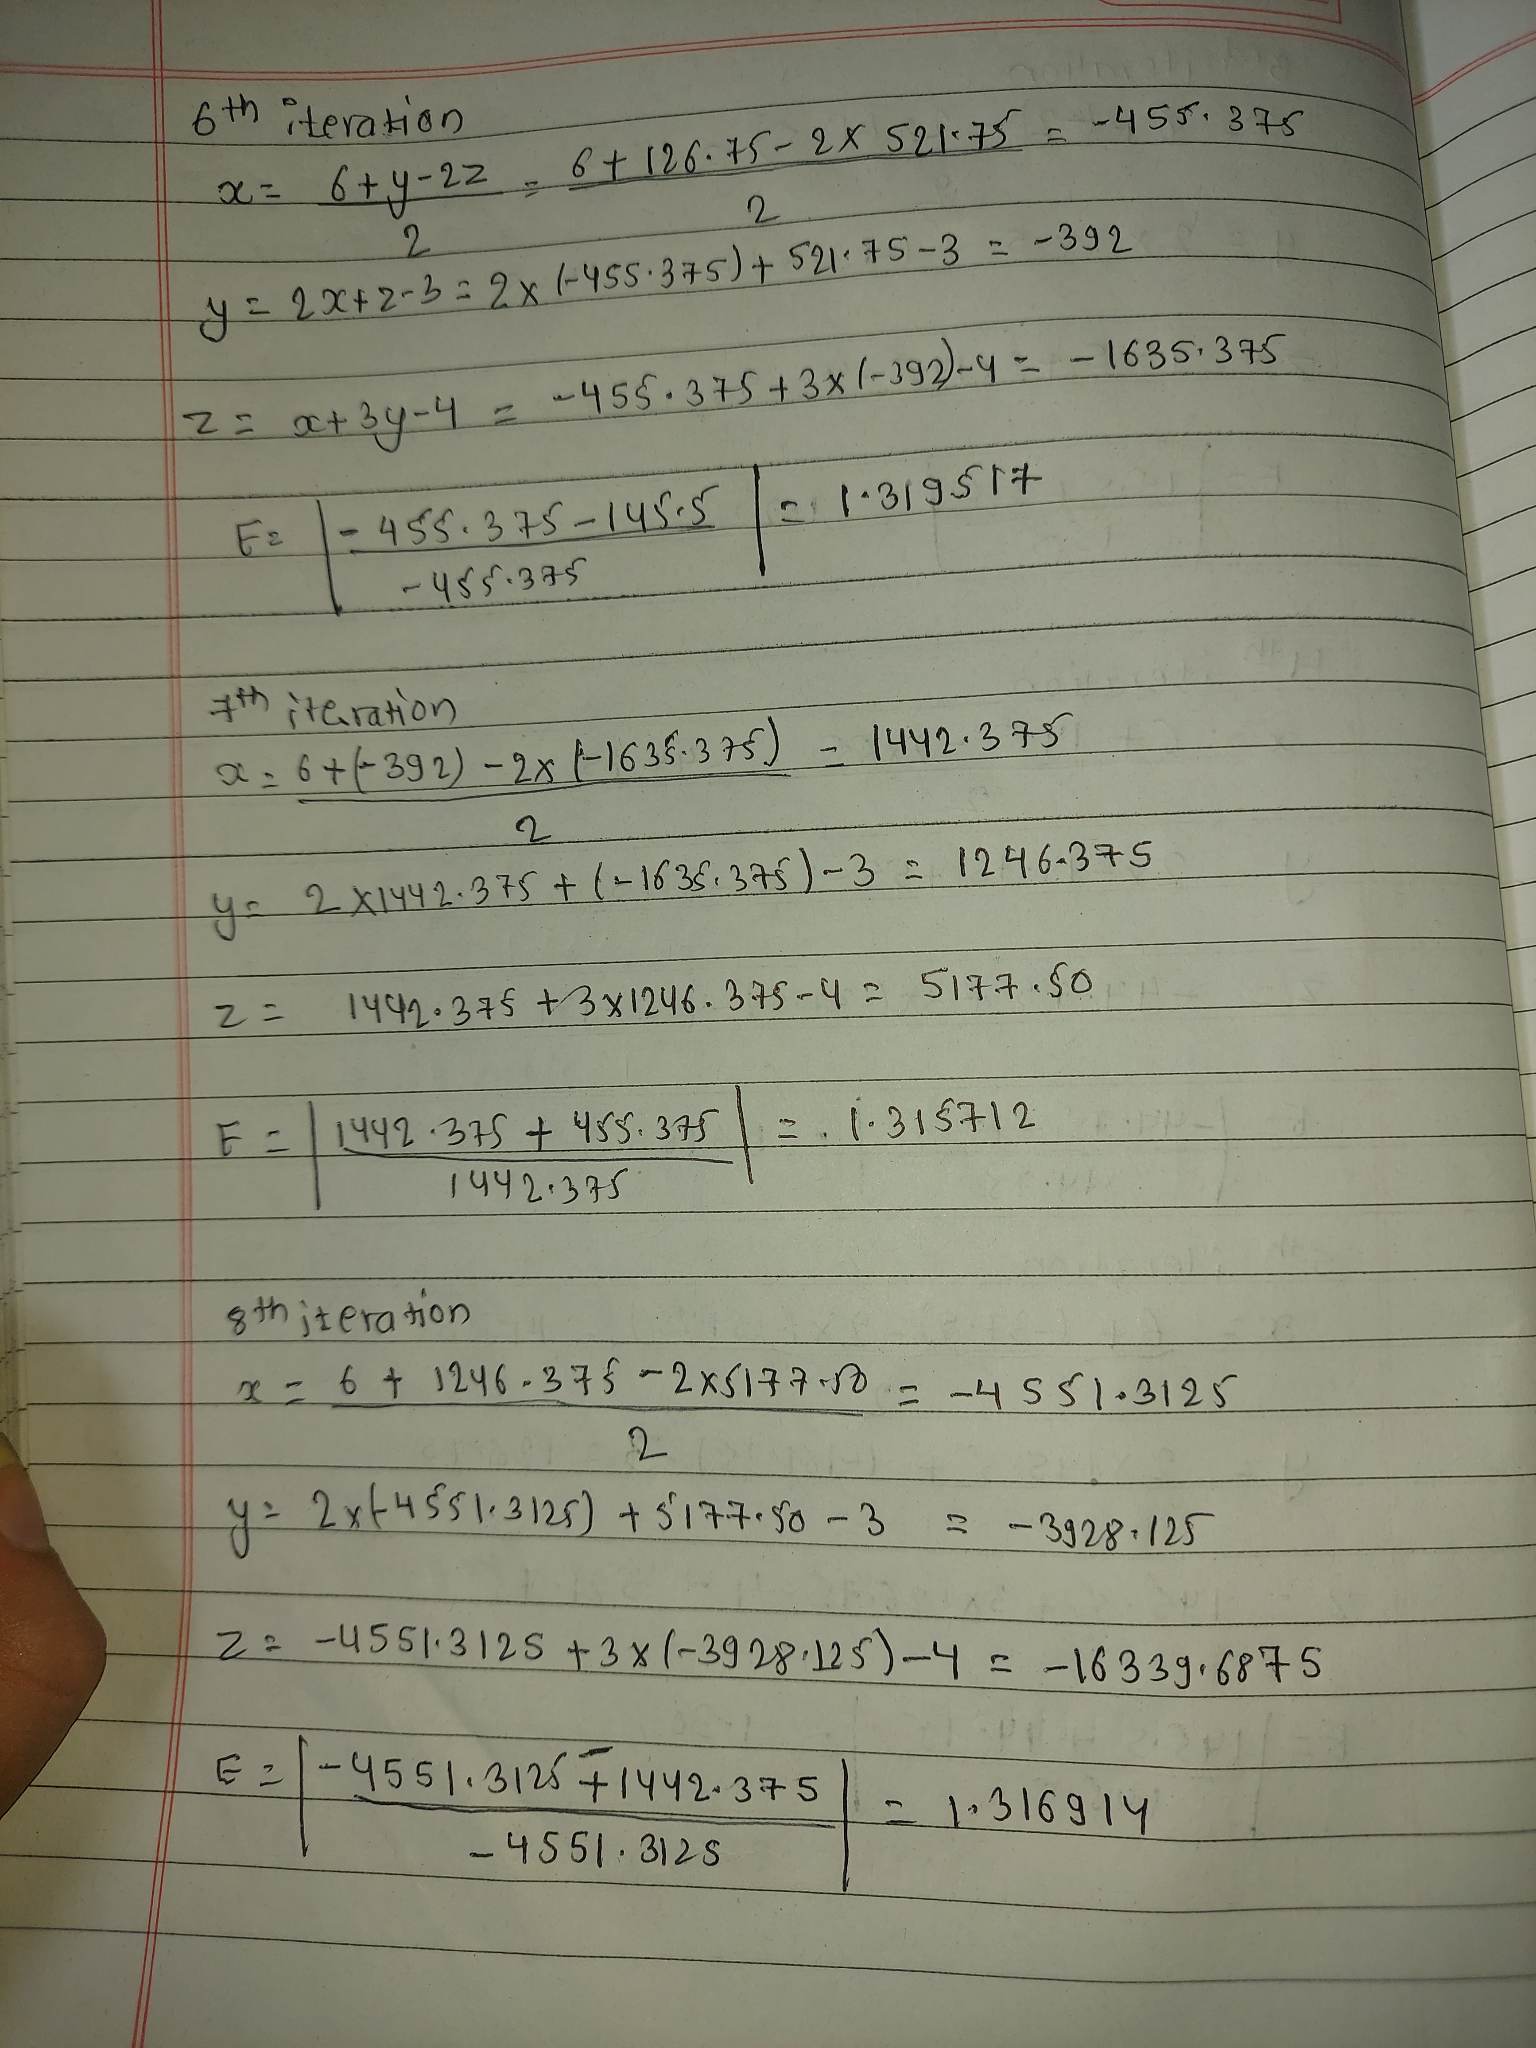 6th iteration
x = 6+y-2z / 2 = 6 + 126.75 - 2 x 521.75 / 2 = -455.375
y = 2x+z-3 = 2 x (-455.375) + 521.75 - 3 = -392
z = x+3y-4 = -455.375 + 3 x (-392) - 4 = -1635.375
E = | -455.375 - 145.5 / -455.375 | = 1.319517
7th iteration
x = 6 + (-392) - 2 x (-1635.375) / 2 = 1442.375
y = 2 x 1442.375 + (-1635.375) - 3 = 1246.375
z = 1442.375 + 3 x 1246.375 - 4 = 5177.50
E = | 1442.375 + 455.375 / 1442.375 | = 1.315712
8th iteration
x = 6 + 1246.375 - 2 x 5177.50 / 2 = -4551.3125
y = 2 x (-4551.3125) + 5177.50 - 3 = -3928.125
z = -4551.3125 + 3 x (-3928.125) - 4 = -16339.6875
E = | -4551.3125 - 1442.375 / -4551.3125 | = 1.316914